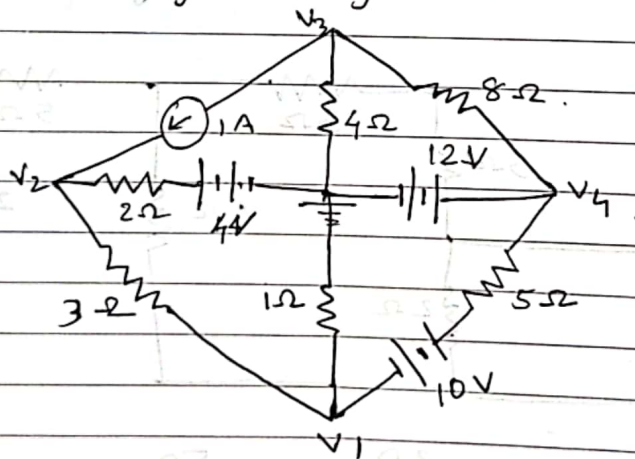 V3
8Ω.
1A
4Ω
12V
V2
V4
2Ω
4V
3Ω
1Ω
5Ω
10V
V1